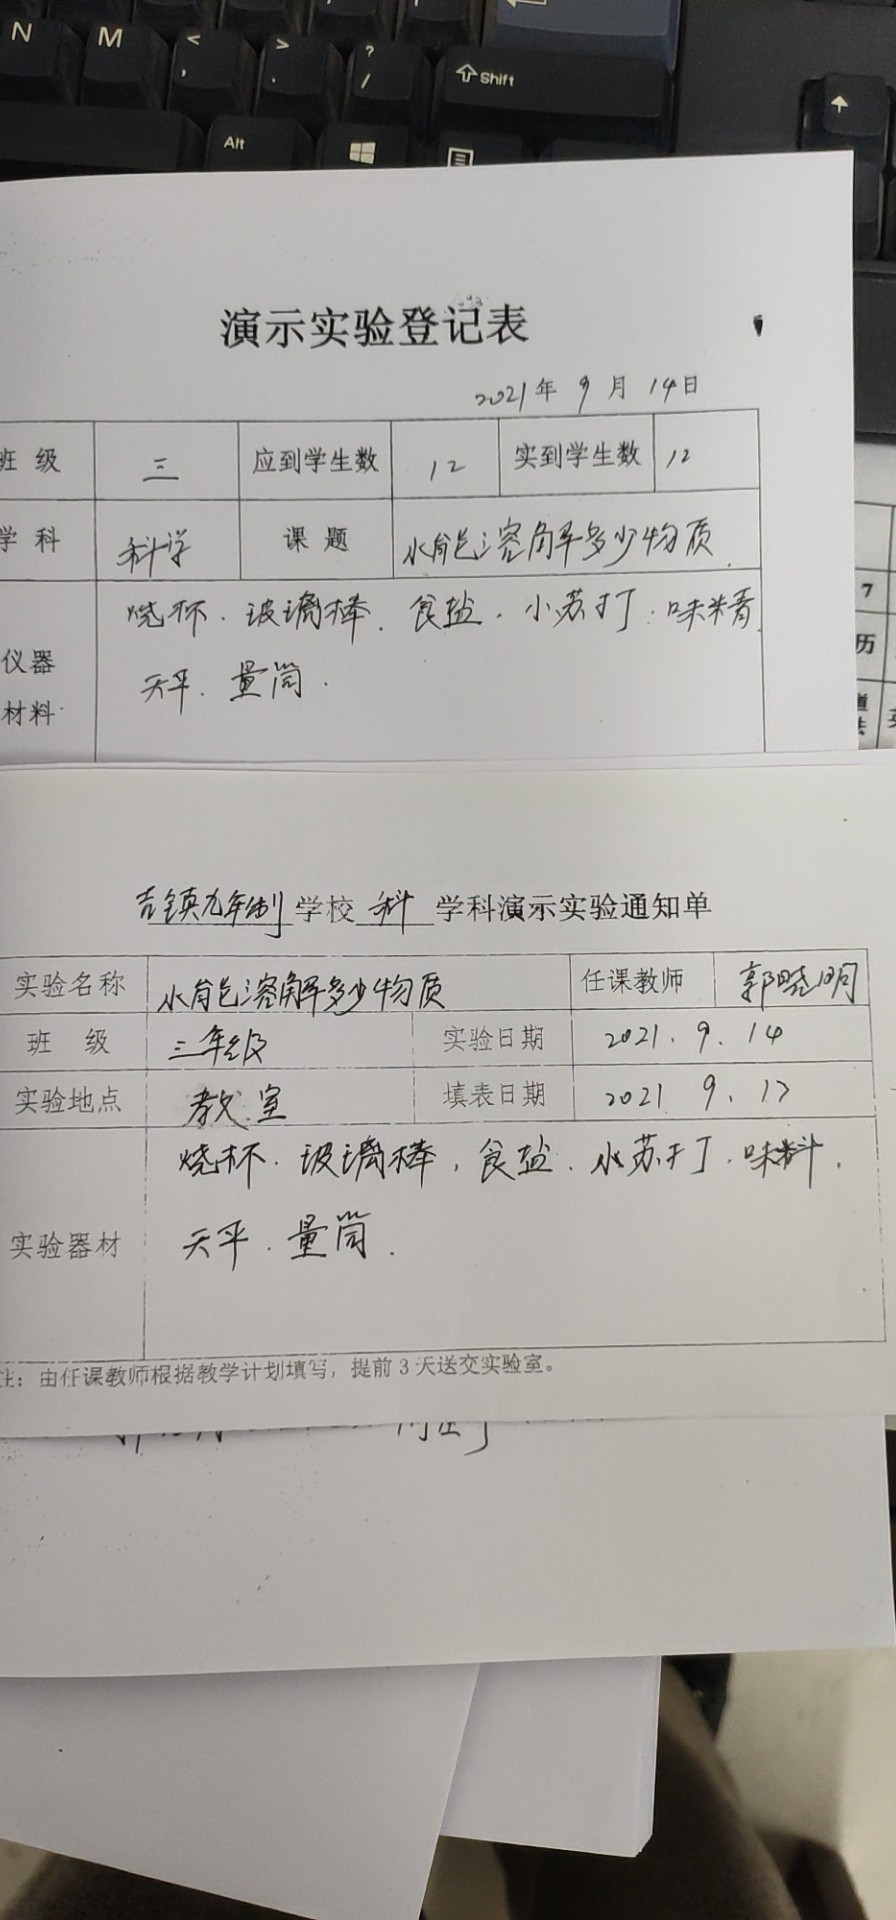 N M < , > . ? / Shift
Alt
演示实验登记表
2021年 9月 14日
班 级 三 应到学生数 12 实到学生数 12
学 科 科学 课 题 水能溶解多少物质
烧杯、玻璃棒、食盐、小苏打、味精
仪器
天平、量筒.
材料
7
历
吉镇九年制学校 科 学科演示实验通知单
实验名称 水能溶解多少物质 任课教师 郭晓明
班 级 三年级 实验日期 2021.9.14
实验地点 教室 填表日期 2021 9.12
烧杯、玻璃棒、食盐、小苏打、味料、
实验器材 天平、量筒.
注：由任课教师根据教学计划填写，提前3天送交实验室。